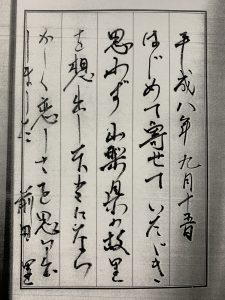 平成八年九月十五日
はじめて寄せていただき
思わず山梨県の故里
を想出し本当になつ
かしく恋しさを思い出
しました
前田 里